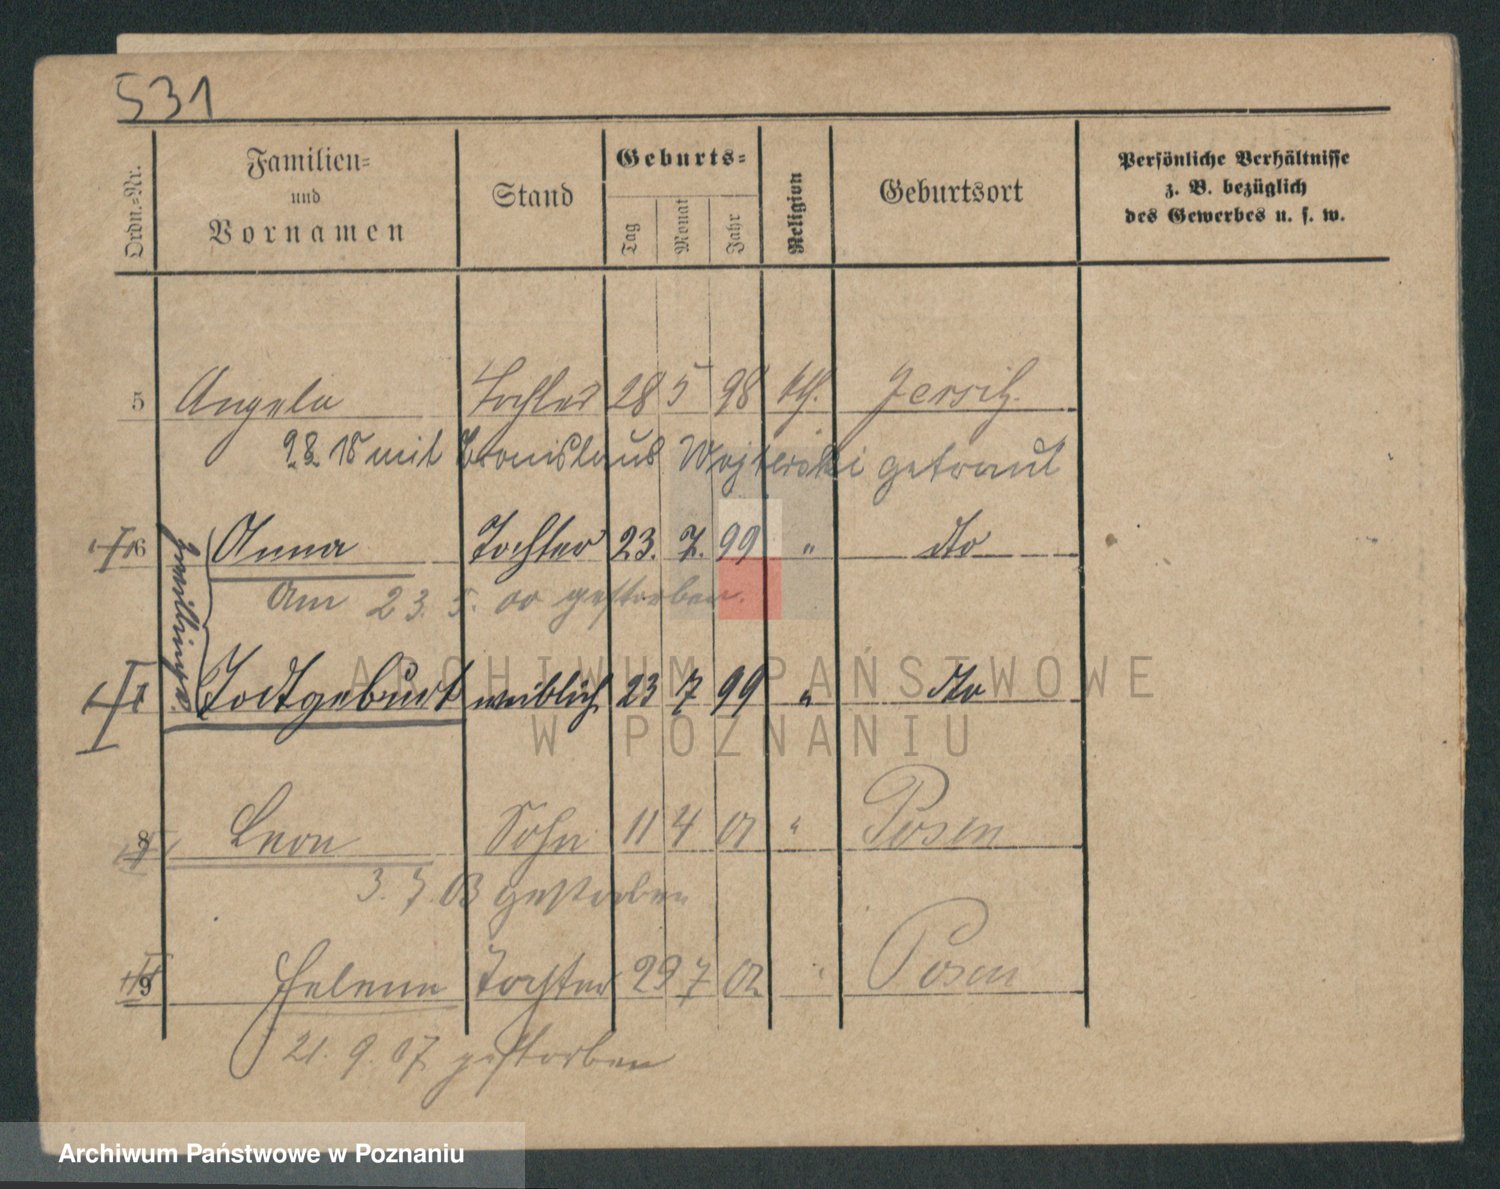 531
Ordn.-Nr. Familien- und Vornamen Stand Geburts- Tag Monat Jahr Religion Geburtsort Persönliche Verhältnisse z. B. bezüglich des Gewerbes u. s. w.
5 Angela Tochter 28 5 98 kth. Jersitz
9.8. 18 mit Bronislaus Wojterski getraut
Zwillinge
6 Anna Tochter 23. 7. 99 " dto
Am 23. 5. 00 gestorben.
7 Todtgeburt weiblich 23 7 99 " dto
ARCHIWUM PAŃSTWOWE
W POZNANIU
8 Leon Sohn 11 4 01 " Posen
3. 7. 03 gestorben
9 Helene Tochter 29 7 02 " Posen
21. 9. 07 gestorben
Archiwum Państwowe w Poznaniu